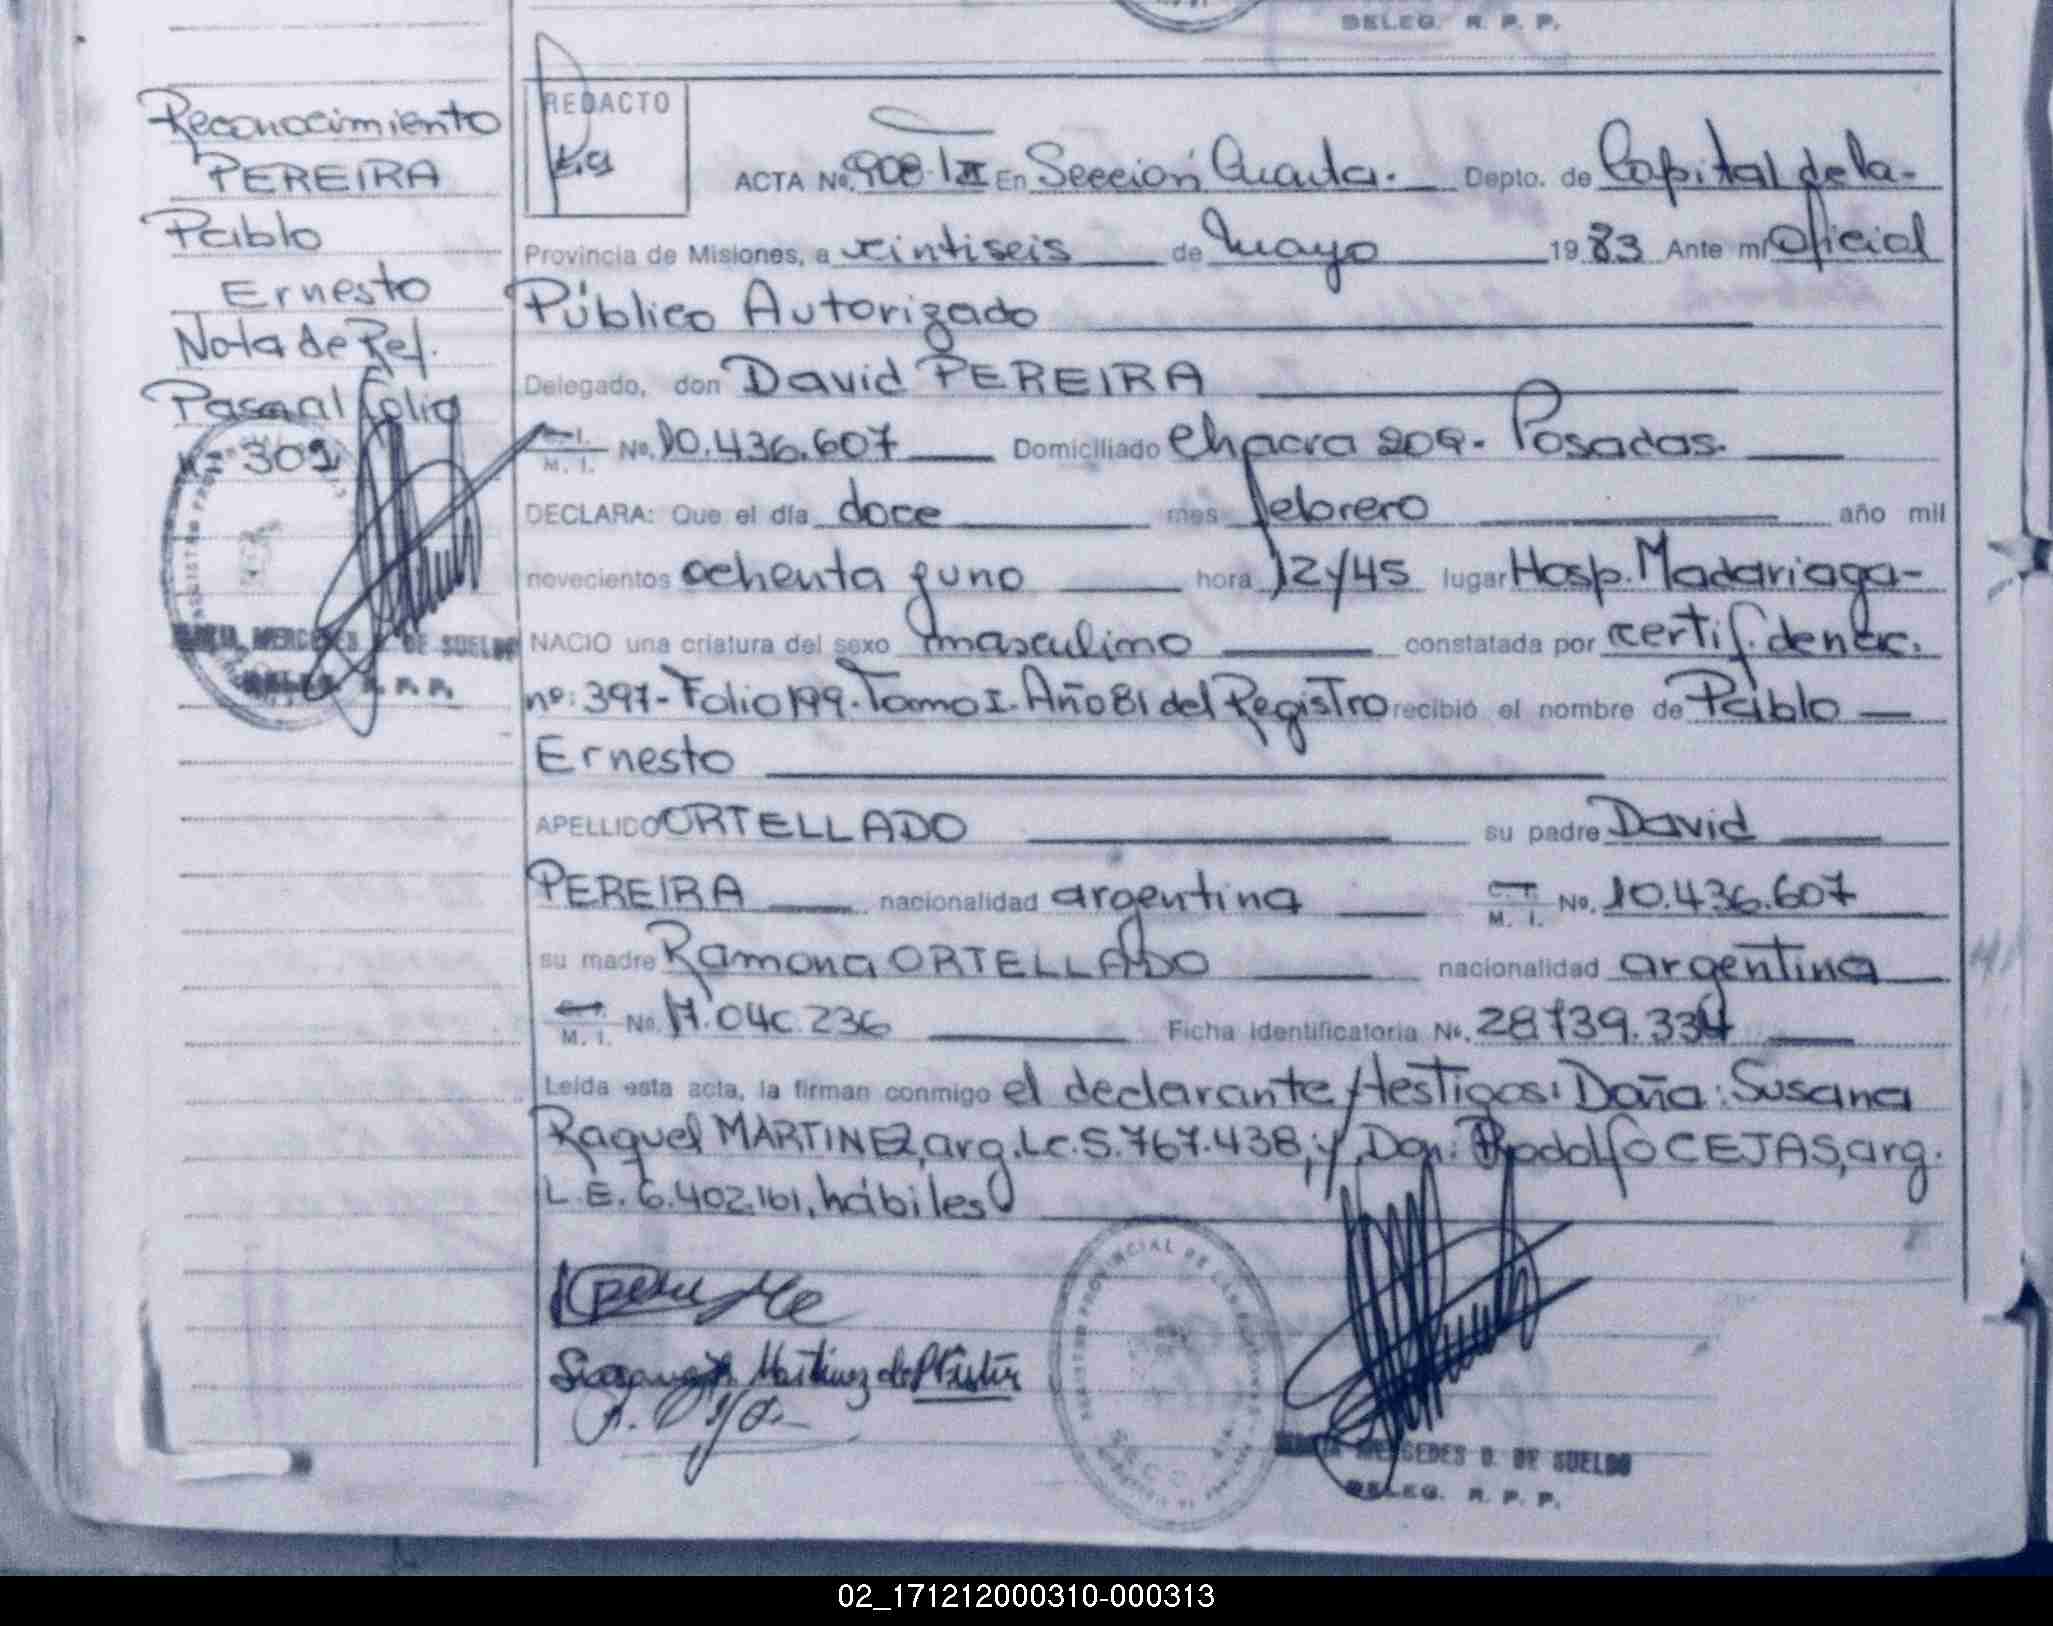 DELEG. R. P. P.
Reconocimiento
PEREIRA
Pablo
Ernesto
Nota de Ref.
Pasa al folio
Nº 309
MERCEDES DE SUELDO
R. P. P.
REDACTO
ACTA No. 908-I En Sección Cuarta. Depto. de Capital de la-
Provincia de Misiones, a veintiseis de mayo 1983 Ante mi Oficial
Público Autorizado
Delegado, don David PEREIRA
M. I. No. 10.436.607 Domiciliado Chacra 209- Posadas.
DECLARA: Que el día doce mes febrero año mil
novecientos ochenta y uno hora 12y45 lugar Hosp. Madariaga-
NACIO una criatura del sexo masculino constatada por certif. de nac.
nº: 397-Folio 199-Tomo I-Año 81 del Registro recibió el nombre de Pablo
Ernesto
APELLIDO ORTELLADO su padre David
PEREIRA nacionalidad argentina M. I. No. 10.436.607
su madre Ramona ORTELLADO nacionalidad argentina
M. I. No. 236 Ficha Identificatoria No. 28739.334
Leída esta acta, la firman conmigo el declarante y testigos: Doña: Susana
Raquel MARTINEZ, arg. L.C. 5.767.438, y Don: Rodolfo CEJAS, arg.
L.E. 6.402.161, hábiles
Martinez de
REGISTRO PROVINCIAL DE LAS PERSONAS
MERCEDES D. DE SUELDO
DELEG. R. P. P.
02_171212000310-000313